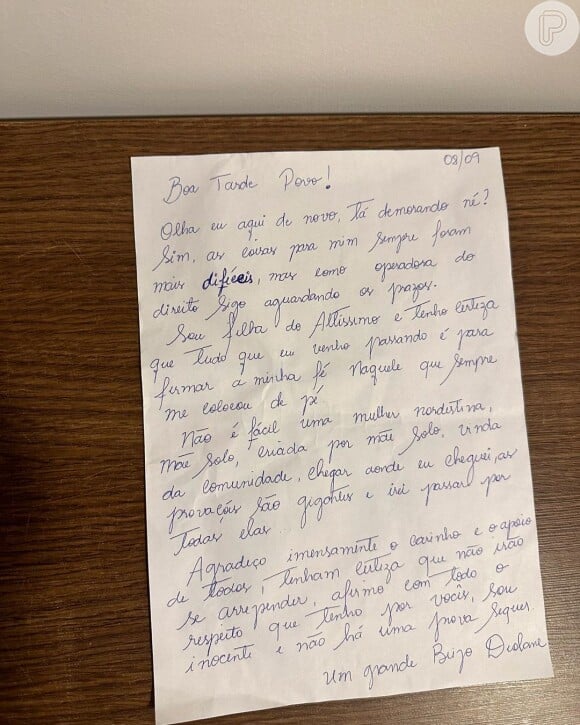 08/09
Boa Tarde Povo!
Olha eu aqui de novo, tá demorando né?
Sim, as coisas para mim sempre foram
mais difíceis, mas como operadora do
direito sigo aguardando os prazos.
Sou filha do Altíssimo e tenho certeza
que tudo que eu venho passando é para
firmar a minha fé Naquele que sempre
me colocou de pé.
Não é fácil uma mulher nordestina,
mãe solo, criada por mãe solo, vinda
da comunidade, chegar aonde eu cheguei, as
provações são gigantes e irei passar por
todas elas...
Agradeço imensamente o carinho e o apoio
de todos, tenham certeza que não irão
se arrepender, afirmo com todo o
respeito que tenho por vocês, sou
inocente e não há uma prova sequer.
Um grande Beijo Deolane